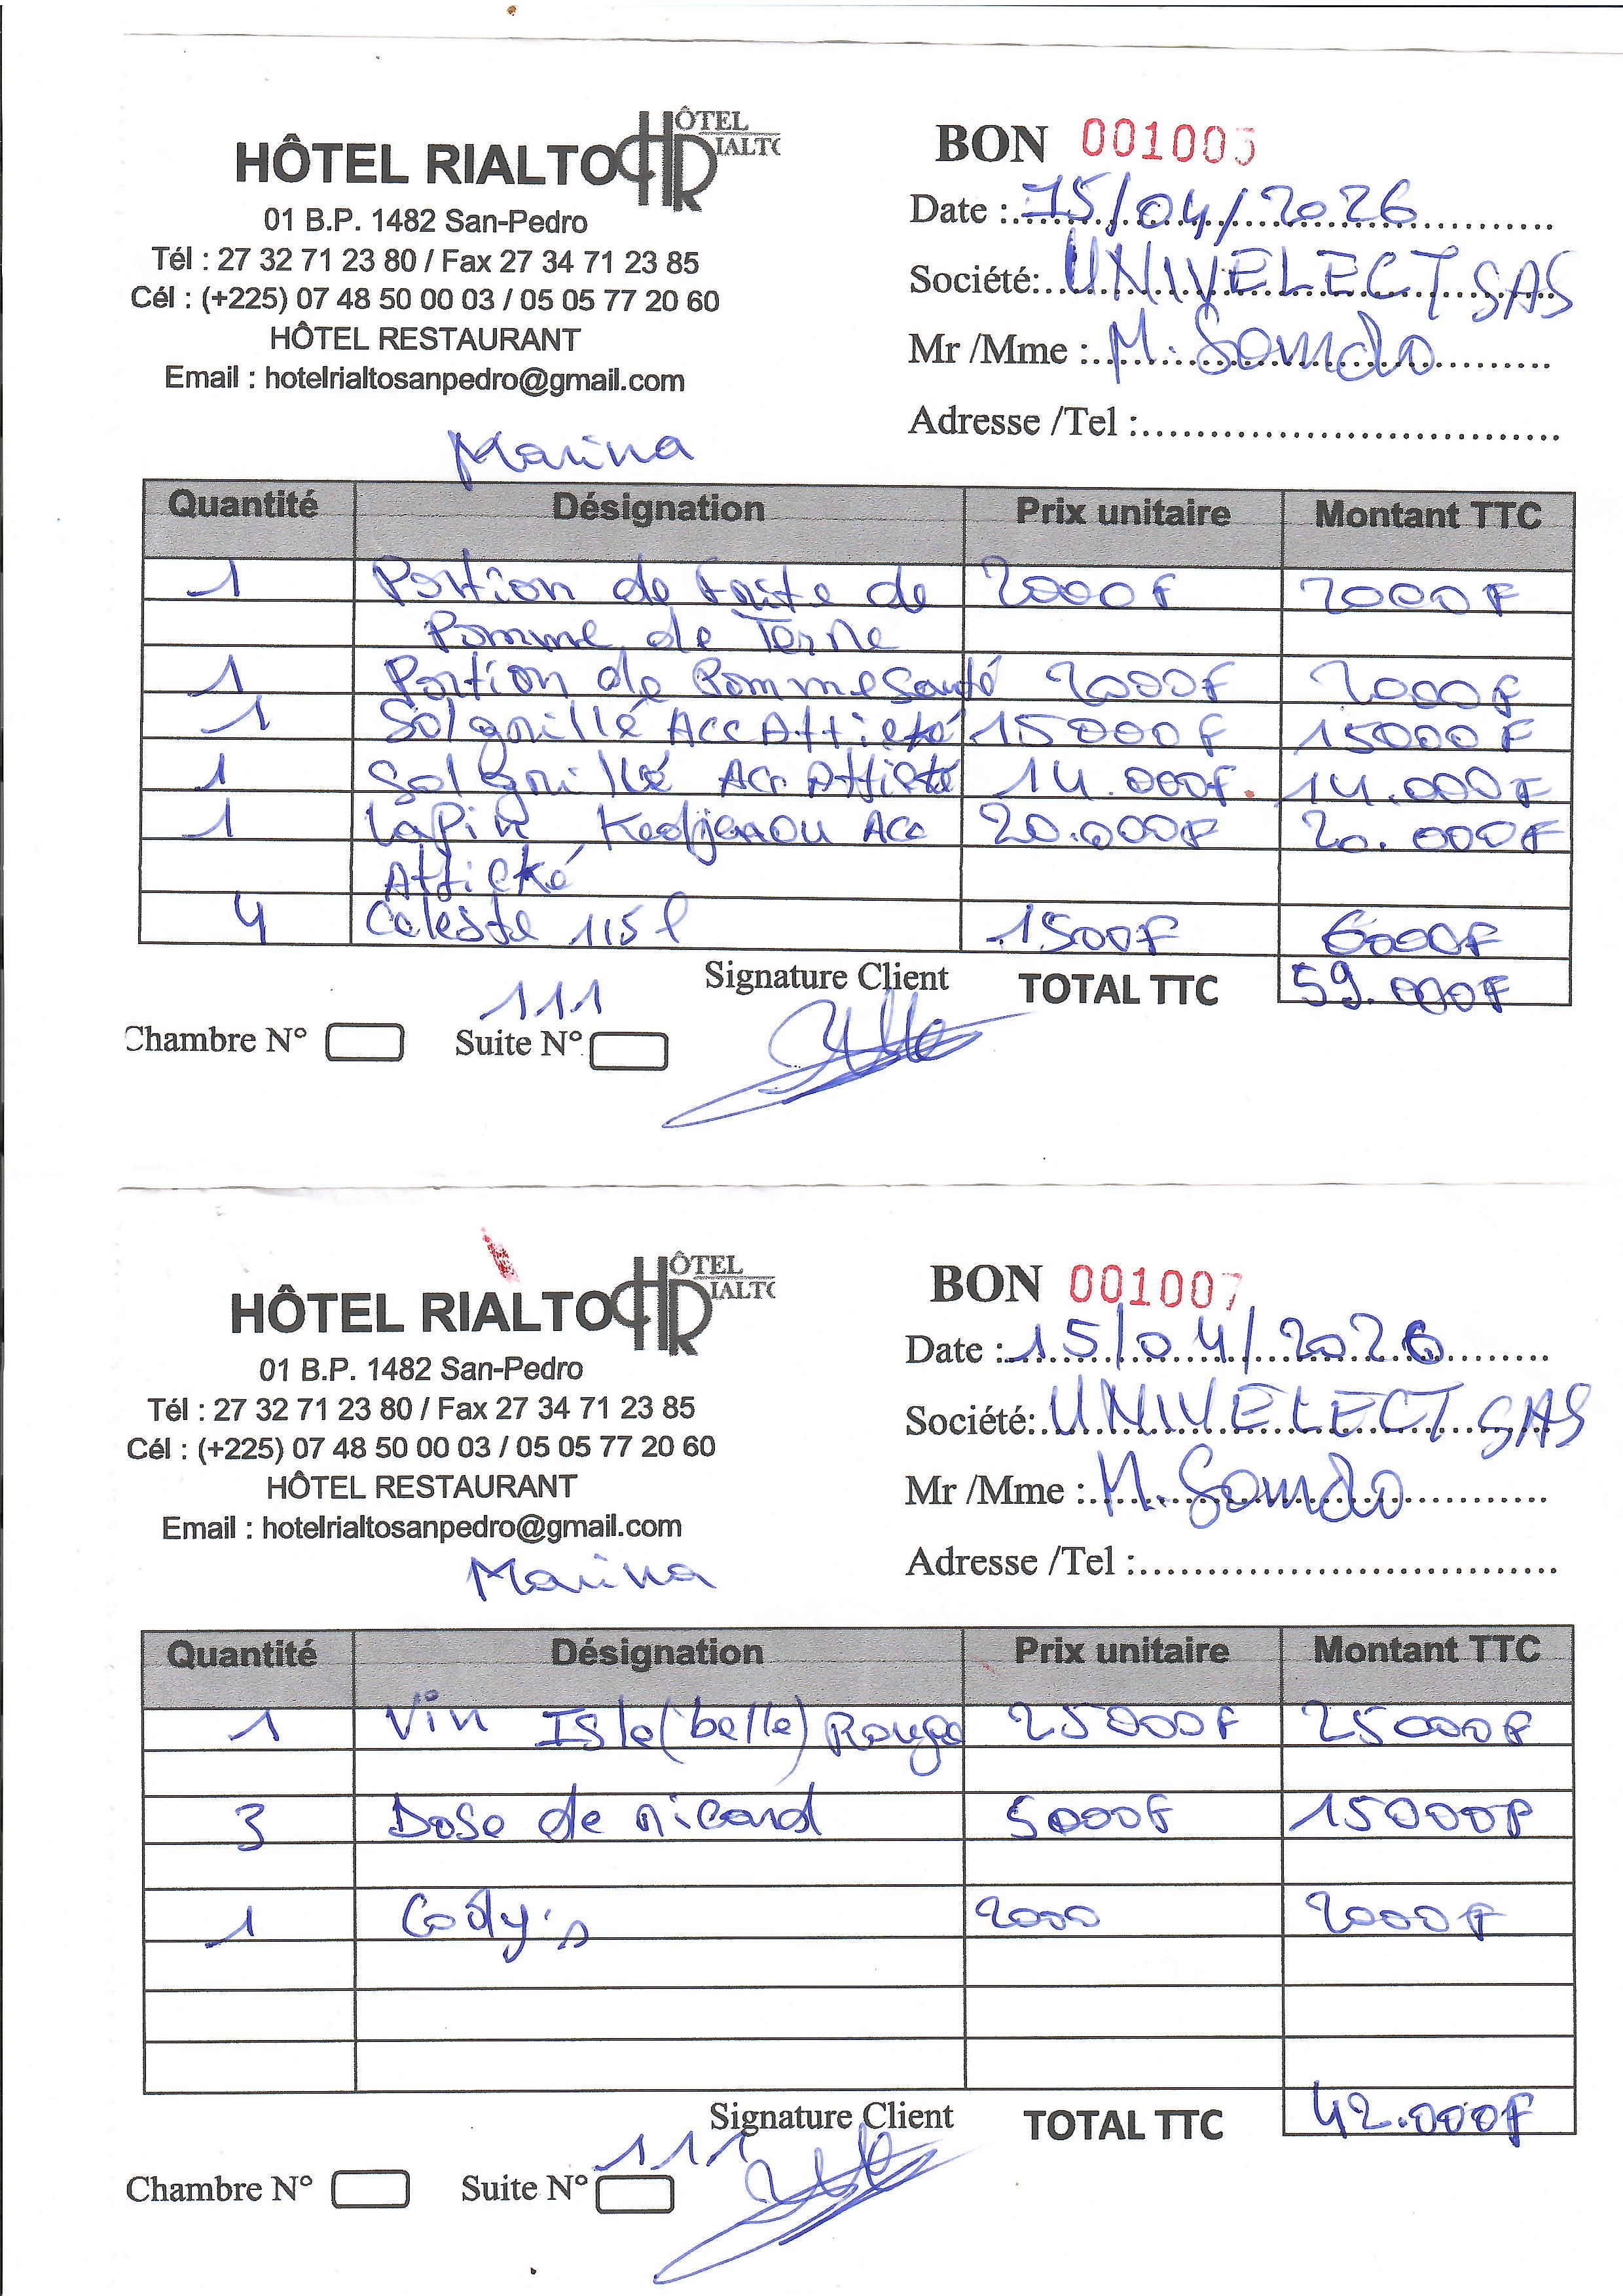 HÔTEL RIALTO HÔTEL RIALTO
01 B.P. 1482 San-Pedro
Tél : 27 32 71 23 80 / Fax 27 34 71 23 85
Cél : (+225) 07 48 50 00 03 / 05 05 77 20 60
HÔTEL RESTAURANT
Email : hotelrialtosanpedro@gmail.com
Marina
BON 001005
Date : 15/04/2026
Société: UNIVELECT SAS
Mr /Mme : M.
Adresse /Tel :
Quantité Désignation Prix unitaire Montant TTC
1 Portion de frite de 2000F 2000F
Pomme de Terre
1 Portion de Pomme Sauté 2000F 2000F
1 Sol grillé Acc Attieké 15000F 15000F
1 Sol grillé Acc Attieké 14.000F 14.000F
1 Lapin Kedjenou Acc 20.000F 20.000F
Attieké
4 Celeste 1,5 l 1500F 6000F
Signature Client TOTAL TTC 59.000F
111
Chambre N° Suite N°
HÔTEL RIALTO HÔTEL RIALTO
01 B.P. 1482 San-Pedro
Tél : 27 32 71 23 80 / Fax 27 34 71 23 85
Cél : (+225) 07 48 50 00 03 / 05 05 77 20 60
HÔTEL RESTAURANT
Email : hotelrialtosanpedro@gmail.com
Marina
BON 001007
Date : 15/04/2026
Société: UNIVELECT SAS
Mr /Mme : M.
Adresse /Tel :
Quantité Désignation Prix unitaire Montant TTC
1 Vin Isle (belle) Rouge 25000F 25000F
3 Dose de ricard 5000F 15000F
1 Cody's 2000 2000F
Signature Client TOTAL TTC 42.000F
111
Chambre N° Suite N°